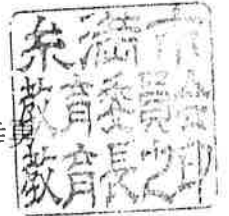 糸満市
教育委員会
教育長之印